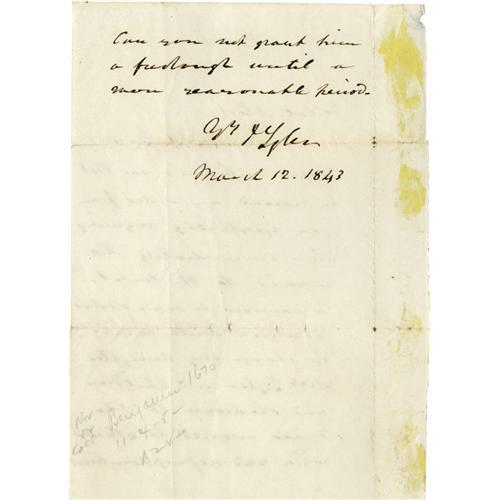 Can you not grant him
a furlough until a
more reasonable period.
Yrs J Tyler
March 12. 1843
Nov
Coll
Benjamin 1670